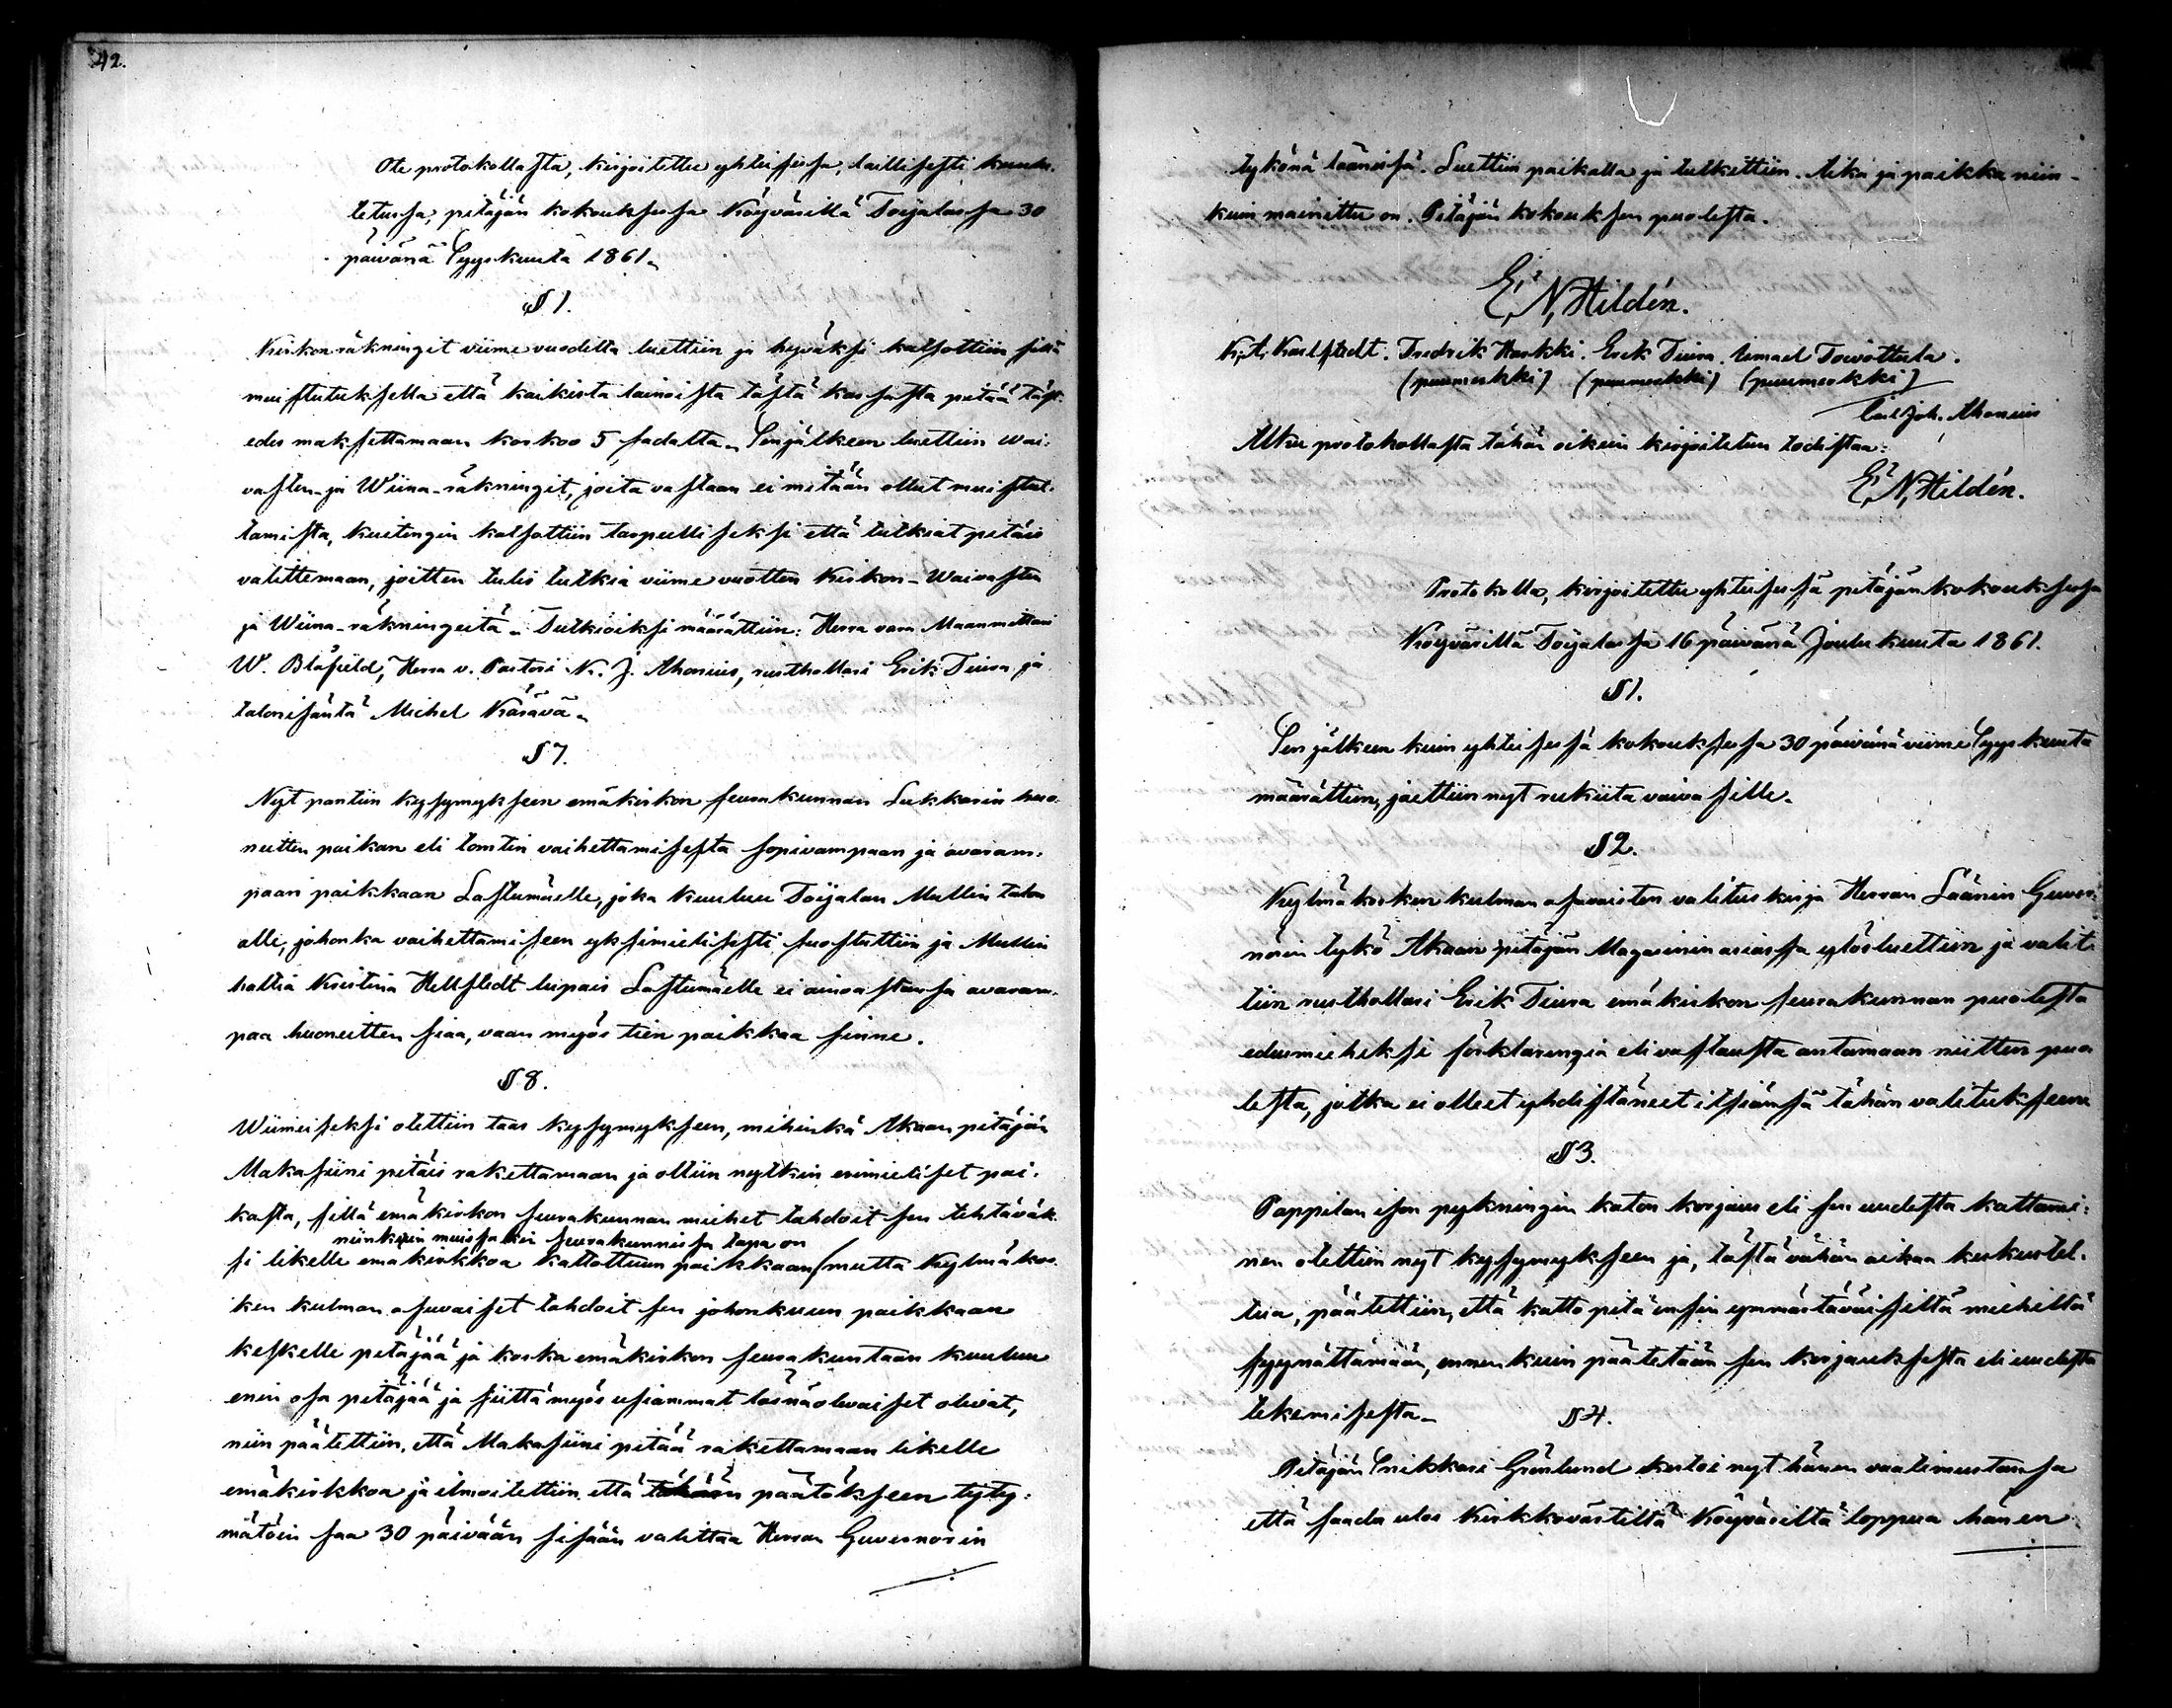 42.
Ote protokollasta, kirjoitettu yhteisessä, laillisesti kuulu-
tetussa, pitäjän kokouksessa Köyvärillä Toijalassa 30
päivänä Syyskuuta 1861.
§ 1.
Kirkon räkningit viime vuodelta luettiin ja hyväksi katsottiin sillä
muistutuksella että kaikista lainoista tästä kassasta pitää täst-
edes maksettamaan korkoo 5 sadalta. Senjälkeen luettiin wai-
vasten- ja Wiina-räkningit, joita vastaan ei mitään ollut muistut-
tamista, kuitengin katsottiin tarpeelliseksi että tutkiat pitäis
valittemaan, joitten tulis tutkia viime vuotten Kirkon- Waivasten
ja Wiina-räkningeitä. Tutkioiksi määrättiin: Herra vara Maanmittari
W. Blåfield, Herra v. Pastori K. J. Ahonius, rusthollari Erik Tiura ja
talonisäntä Michel Kärävä.
§ 7.
Nyt pantiin kysymykseen emäkirkon seurakunnan Lukkarin huo-
neitten paikan eli tomtin vaihettamisesta sopivampaan ja avaram-
paan paikkaan Lastumäelle, joka kuuluu Toijalan Mullin talon
alle, johonka vaihettamiseen yksimielisesti suostuttiin ja Mullin
haltia Kristina Hellstedt lupais Lastumäelle ei ainoastansa avaram-
paa huoneitten siaa, vaan myös tien paikkaa sinne.
§ 8.
Wiimeiseksi otettiin taas kysymykseen, mihinkä Akaan pitäjän
Makasiini pitäis rakettamaan ja oltiin nytkin erimieliset pai-
kasta, sillä emäkirkon seurakunnan miehet tahdoit sen tehtäväk-
niinkuin muissakin seurakunnissa tapa on
si likelle emäkirkkoa kattottuun paikkaan mutta Kylmäkos-
ken kulman asuvaiset tahdoit sen johonkuun paikkaan
keskelle pitäjää ja koska emäkirkon seurakuntaan kuuluu
enin osa pitäjää ja siittä myös usiammat läsnäolevaiset olivat,
niin päätettiin, että Makasiini pitää rakettamaan likelle
emäkirkkoa ja ilmoitettiin, että tähän päätökseen tyty-
mätöin saa 30 päivään sisään valittaa Herran Guvernörin
tykönä läänissä. Luettiin paikalla ja tulkittiin. Aika ja paikka niin-
kuin mainittu on. Pitäjän kokouksen puolesta.
E, N, Hildén.
K, A, Karlstedt. Fredrik Harkki. Erik Tiura. Ismael Toivottula.
(puumerkki) (puumerkki) (puumerkki)
Carl Joh. Ahonius
Alku protokollasta tähän oikein kirjoitetun todistaa:
E, N, Hildén.
Protokolla, kirjoitettu yhteisessä pitäjänkokouksessa
Köyvärillä Toijalassa 16 päivänä Joulukuuta 1861.
§ 1.
Sen jälkeen kuin yhteisessä kokouksessa 30 päivänä viime Syyskuuta
määrättiin, jaettiin nyt rukiita vaivasille.
§ 2.
Kylmäkosken kulman asuvaisten valituskirja Herran Läänin Guver-
nörin tykö Akaan pitäjän Magasinin asiassa ylösluettiin ja valit-
tiin rusthollari Erik Tiura emäkirkon seurakunnan puolesta
edusmieheksi förklaringia eli vastausta antamaan niitten puo
lesta, jotka ei olleet yhdistäneet itsiänsä tähän valitukseen
§ 3.
Pappilan ison pykningin katon korjaus eli sen uudesta kattami-
nen otettiin nyt kysymykseen ja, tästä vähän aikaa keskustel-
tua, päätettiin, että katto pitä ensin ymmärtäväisiltä miehiltä
syynättämään, ennenkuin päätetään sen korjauksesta eli uudesta
tekemisestä.
§ 4.
Pitäjän Snikkari Grönlund kertoi nyt hänen vaatimustansa
että saada ulos Kirkkovärtiltä Köyväriltä loppua hänen